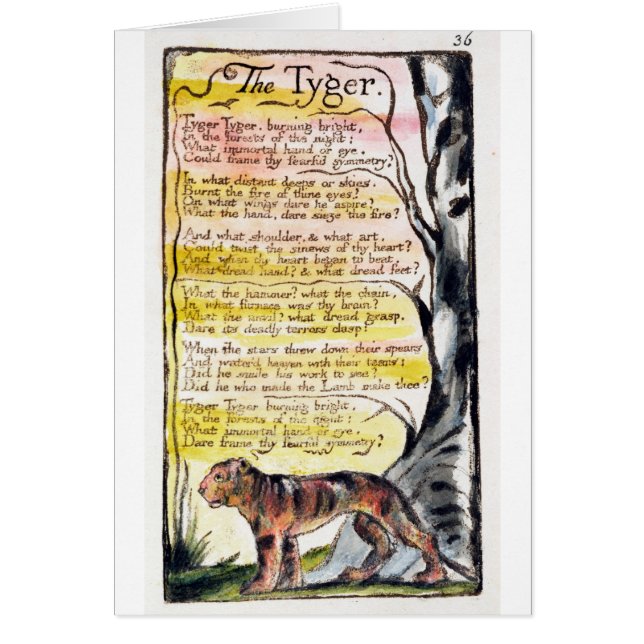 36
The Tyger.
Tyger Tyger, burning bright,
In the forests of the night;
What immortal hand or eye,
Could frame thy fearful symmetry?
In what distant deeps or skies,
Burnt the fire of thine eyes?
On what wings dare he aspire?
What the hand, dare sieze the fire?
And what shoulder, & what art,
Could twist the sinews of thy heart?
And when thy heart began to beat,
What dread hand? & what dread feet?
What the hammer? what the chain,
In what furnace was thy brain?
What the anvil? what dread grasp,
Dare its deadly terrors clasp!
When the stars threw down their spears
And water'd heaven with their tears:
Did he smile his work to see?
Did he who made the Lamb make thee?
Tyger Tyger burning bright,
In the forests of the night:
What immortal hand or eye,
Dare frame thy fearful symmetry?